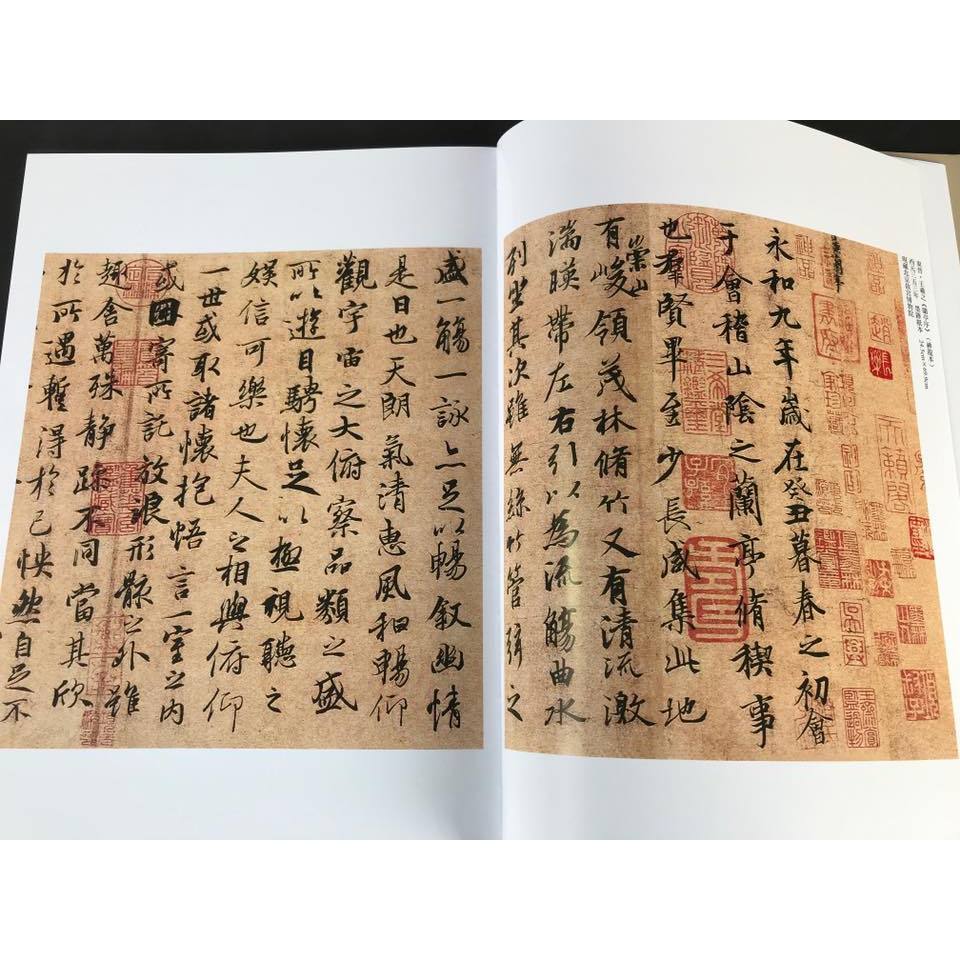 東晉・王羲之《蘭亭序》（神龍本）
西元三五三年 墨跡紙本 24.5cm×69.9cm
現藏北京故宮博物院
永和九年歲在癸丑暮春之初會
于會稽山陰之蘭亭脩稧事
也羣賢畢至少長咸集此地
有崇山峻領茂林脩竹又有清流激
湍暎帶左右引以為流觴曲水
列坐其次雖無絲竹管弦之
盛一觴一詠亦足以暢敘幽情
是日也天朗氣清惠風和暢仰
觀宇宙之大俯察品類之盛
所以遊目騁懷足以極視聽之
娛信可樂也夫人之相與俯仰
一世或取諸懷抱悟言一室之內
或因寄所託放浪形骸之外雖
趣舍萬殊靜躁不同當其欣
於所遇蹔得於己怏然自足不